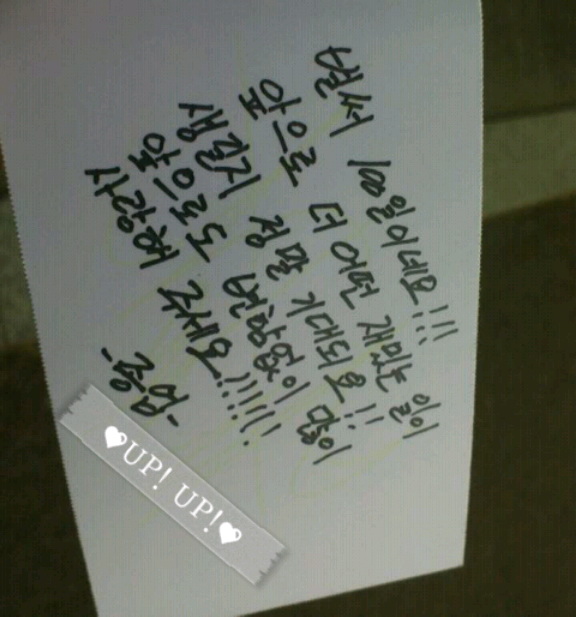 벌써 100일이네요!!!
앞으로 더 어떤 재밌는 일이
생길지 정말 기대되요!!
앞으로도 변함없이 많이
사랑해 주세요!!!!!!
-업종-
♥UP! UP!♥